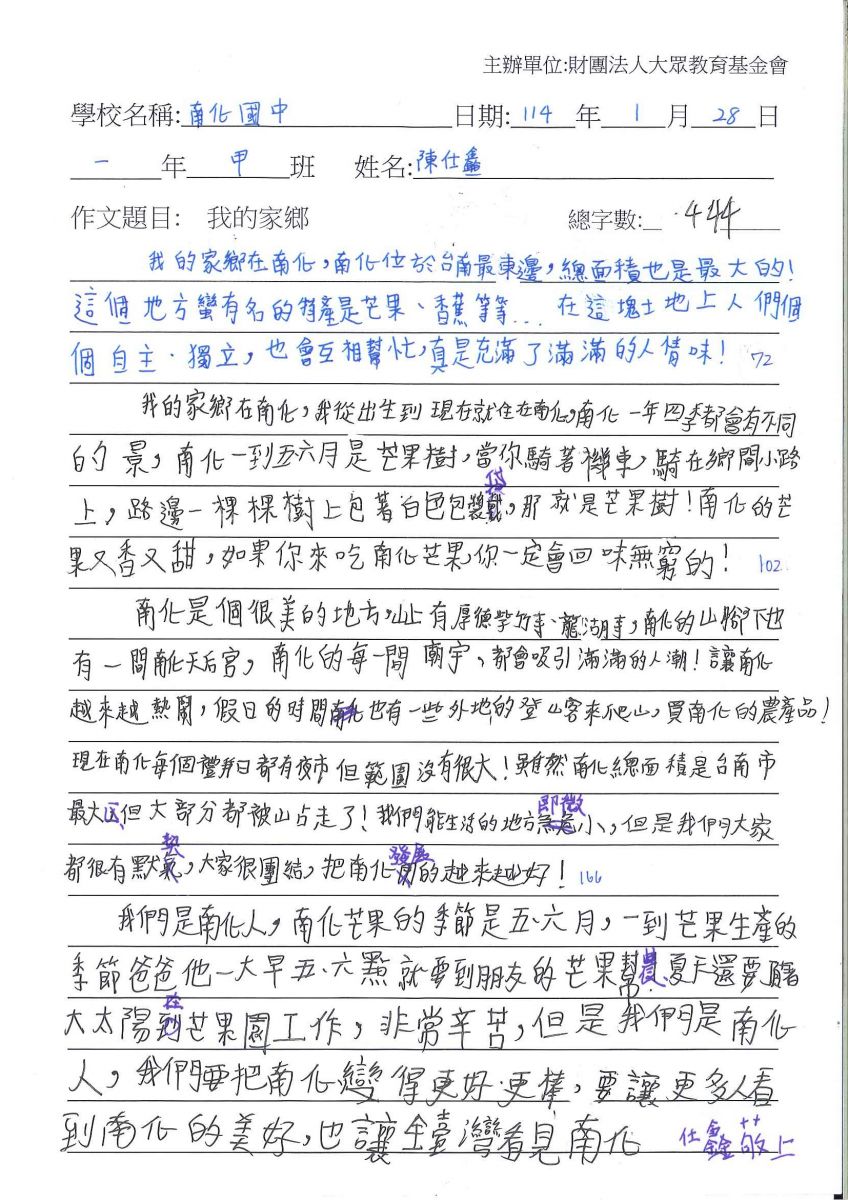 主辦單位:財團法人大眾教育基金會
學校名稱:南化國中 日期:114年1月28日
一年甲班 姓名:陳仕鑫
作文題目: 我的家鄉 總字數: 444
我的家鄉在南化,南化位於台南最東邊,總面積也是最大的!
這個地方蠻有名的特產是芒果、香蕉等等... 在這塊土地上人們個
個自主、獨立,也會互相幫忙,真是充滿了滿滿的人情味! 72
我的家鄉在南化,我從出生到現在就住在南化,南化一年四季都會有不同
的景,南化一到五六月是芒果樹,當你騎著機車,騎在鄉間小路
上,路邊一棵棵樹上包著白色包裝袋,那就是芒果樹!南化的芒
果又香又甜,如果你來吃南化芒果,你一定會回味無窮的! 102
南化是個很美的地方,山上有厚德紫竹寺、龍湖寺,南化的山腳下也
有一間南化天后宮,南化的每一間廟宇,都會吸引滿滿的人潮!讓南化
越來越熱鬧,假日的時間也有一些外地的登山客來爬山,買南化的農產品!
現在南化每個禮拜日都有夜市但範圍沒有很大!雖然南化總面積是台南市
最大区,但大部分都被山占走了!我們能生活的地方即微小,但是我們大家
都很有默契,大家很團結,把南化發展的越來越好! 166
我們是南化人,南化芒果的季節是五、六月,一到芒果生產的
季節爸爸他一大早五、六點就要到朋友的芒果幫農,夏天還要曬著
大太陽在芒果園工作,非常辛苦,但是我們是南化
人,我們要把南化變得更好更棒,要讓更多人看
到南化的美好,也讓全臺灣看見南化
仕鑫敬上